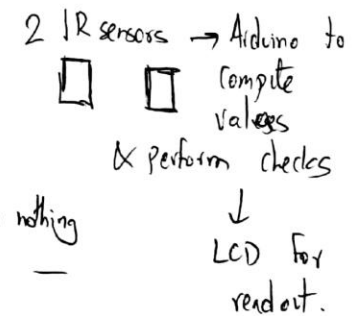 2 IR sensors → Arduino to
compute
values
& perform checks
↓
nothing
LCD for
readout.